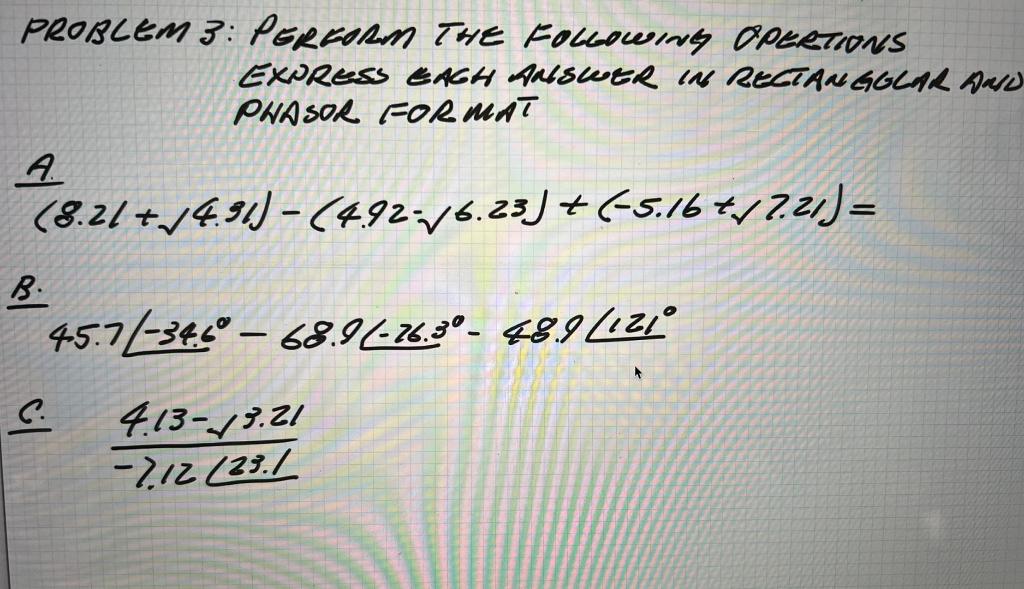 PROBLEM 3: PERFORM THE FOLLOWING OPERTIONS
EXPRESS EACH ANSWER IN RECTANGULAR AND
PHASOR FORMAT
A.
(8.21 + j4.91) - (4.92 - j6.23) + (-5.16 + j7.21) =
B.
45.7 ∠-34.6° - 68.9 ∠-76.3° - 48.9 ∠121°
C.
4.13 - j3.21
-7.12 ∠23.1